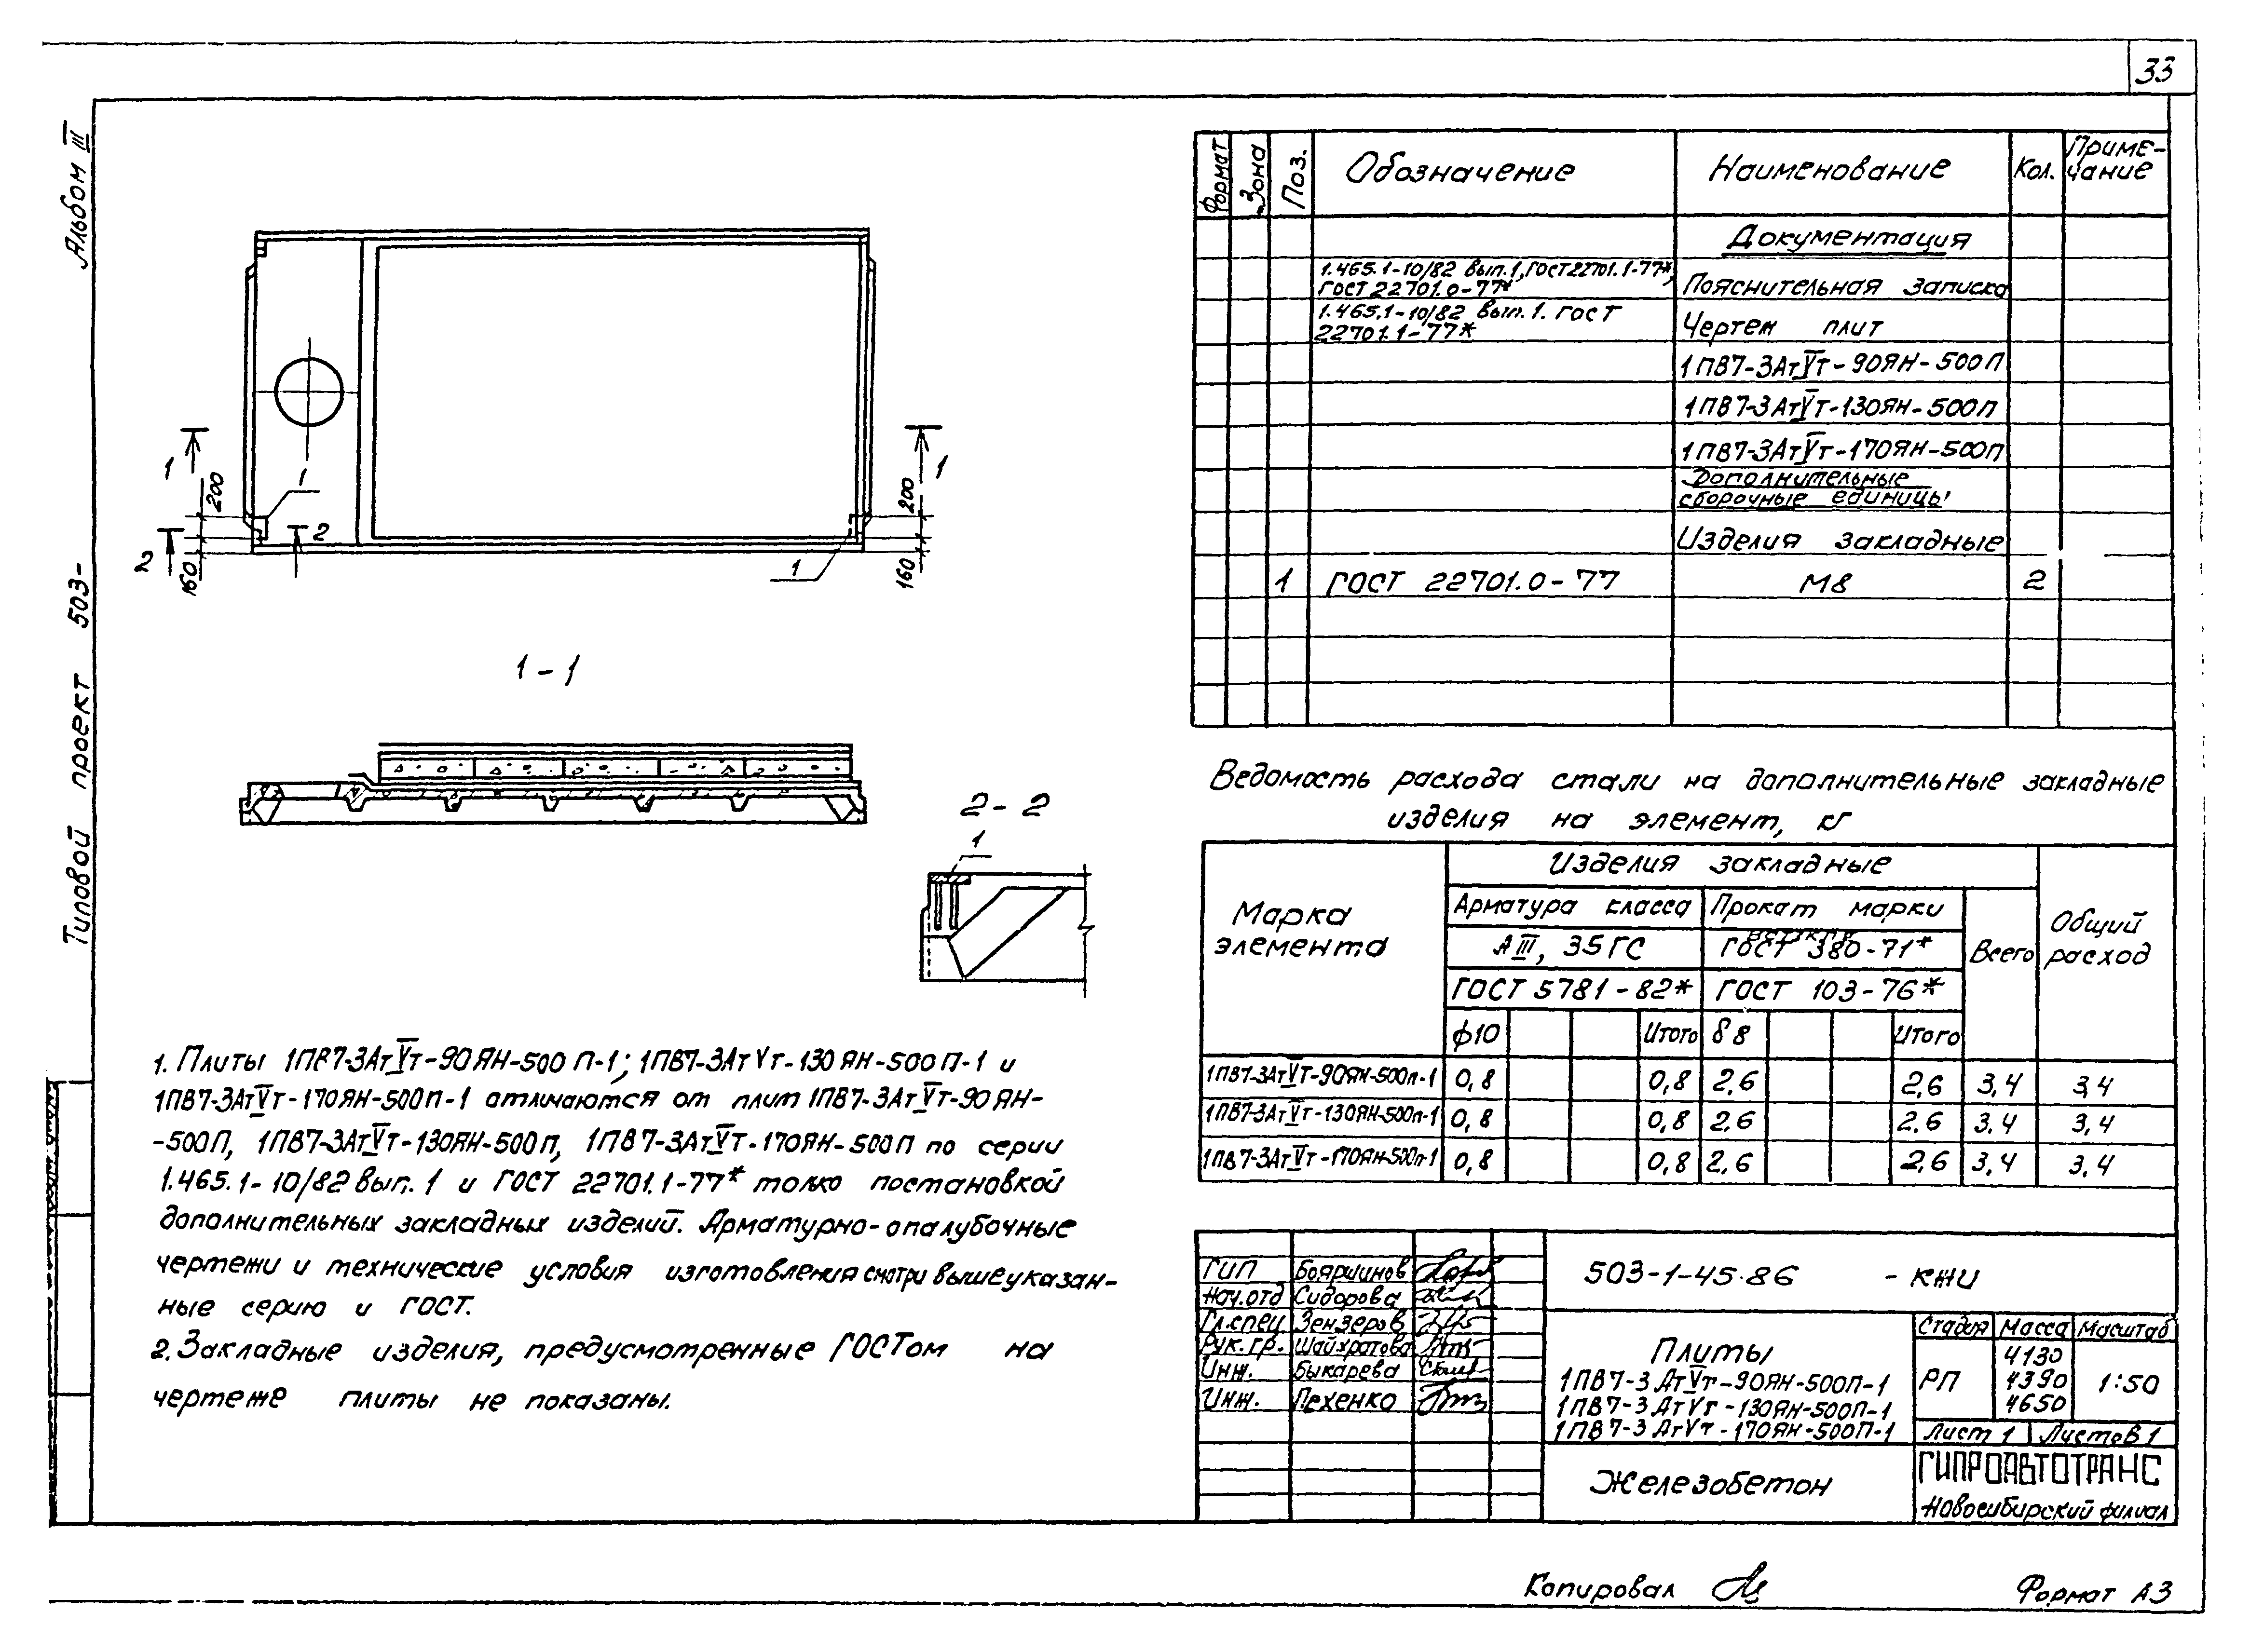 33
Альбом III
Типовой проект 503-
1
200
2
160
1
2
1
200
160
1
1-1
2-2
1
1. Плиты 1ПВ7-3АтVт-90ЯН-500П-1; 1ПВ7-3АтVт-130ЯН-500П-1 и
1ПВ7-3АтVт-170ЯН-500П-1 отличаются от плит 1ПВ7-3АтVт-90ЯН-
-500П, 1ПВ7-3АтVт-130ЯН-500П, 1ПВ7-3АтVт-170ЯН-500П по серии
1.465.1-10/82 вып.1 и ГОСТ 22701.1-77* только постановкой
дополнительных закладных изделий. Арматурно-опалубочные
чертежи и технические условия изготовления смотри вышеуказан-
ные серию и ГОСТ.
2. Закладные изделия, предусмотренные ГОСТом на
чертеже плиты не показаны.
Формат Зона Поз. Обозначение Наименование Кол. Приме-
чание
Документация
1.465.1-10/82 вып.1, ГОСТ 22701.1-77*,
ГОСТ 22701.0-77* Пояснительная записка
1.465.1-10/82 вып.1. ГОСТ
22701.1-77* Чертеж плит
1ПВ7-3АтVт-90ЯН-500П
1ПВ7-3АтVт-130ЯН-500П
1ПВ7-3АтVт-170ЯН-500П
Дополнительные
сборочные единицы
Изделия закладные
1 ГОСТ 22701.0-77 М8 2
Ведомость расхода стали на дополнительные закладные
изделия на элемент, кг
Марка
элемента
Изделия закладные
Общий
расход
Арматура класса Прокат марки
Всего
АIII, 35ГС ГОСТ 380-71*
ГОСТ 5781-82* ГОСТ 103-76*
ф10 Итого δ8 Итого
1ПВ7-3АтVт-90ЯН-500П-1 0,8 0,8 2,6 2,6 3,4 3,4
1ПВ7-3АтVт-130ЯН-500П-1 0,8 0,8 2,6 2,6 3,4 3,4
1ПВ7-3АтVт-170ЯН-500П-1 0,8 0,8 2,6 2,6 3,4 3,4
ГИП Бояршинов
Нач.отд Сидорова
Гл.спец Зензеров
Рук.гр. Шайхратова
Инж. Быкарева
Инж. Пехенко
503-1-45.86 -КЖИ
Плиты
1ПВ7-3АтVт-90ЯН-500П-1
1ПВ7-3АтVт-130ЯН-500П-1
1ПВ7-3АтVт-170ЯН-500П-1
Стадия Масса Масштаб
РП 4130
4390
4650 1:50
Лист 1 Листов 1
Железобетон
ГИПРОАВТОТРАНС
Новосибирский филиал
Копировал
Формат А3